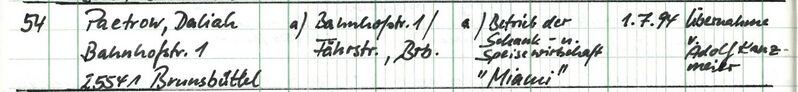 54 Paetrow, Daliah a) Bahnhofstr. 1/ a) Betrieb der 1.7.94 Übernahme
Bahnhofstr. 1 Fährstr., Brb. Schank- u. v.
Speisewirtschaft Adolf Kanz-
25541 Brunsbüttel "Miami" meier